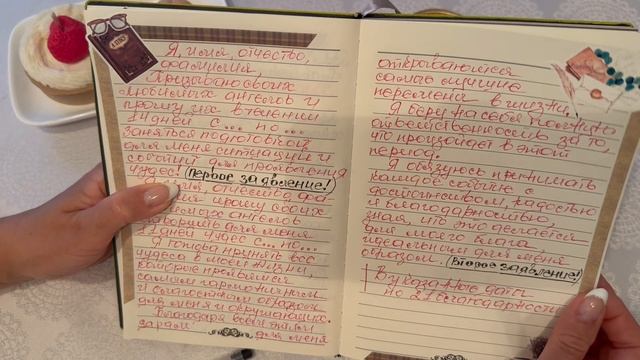 Я, имя, отчество,
фамилия,
Призываю своих
любимых ангелов и
прошу их в течении
14 дней с... по...
заняться подготовкой
для меня ситуаций и
событий для проявления
чудес! (Первое заявление!)
имя, отчество, фа-
прошу своих
ангелов
для меня
21 дней чудес с... по...
Я готова принять все
чудеса в моей жизни,
которые проявятся
самым гармоничным
и согласованным образом
для меня и окружающих.
Благодаря всем этим
дарам для меня
открываются
самые лучшие
перемены в жизни.
Я беру на себя полную
ответственность за то,
что произойдет в этот
период.
Я обязуюсь принимать
каждое событие с
достоинством, радостью
и благодарностью,
зная что это делается
для моего блага
идеальным для меня
образом. (Второе заявление!)
В указанные даты
по 21 благодарности